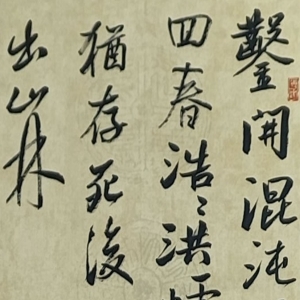 鑿開混沌
回春浩〻洪
猶存死後
出山林